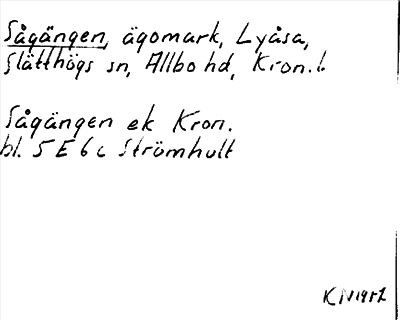 Sågängen, ägomark, Lyåsa,
Slätthögs sn, Allbo hd, Kron. l.
Sågängen ek Kron.
bl. 5 E 6 c Strömhult